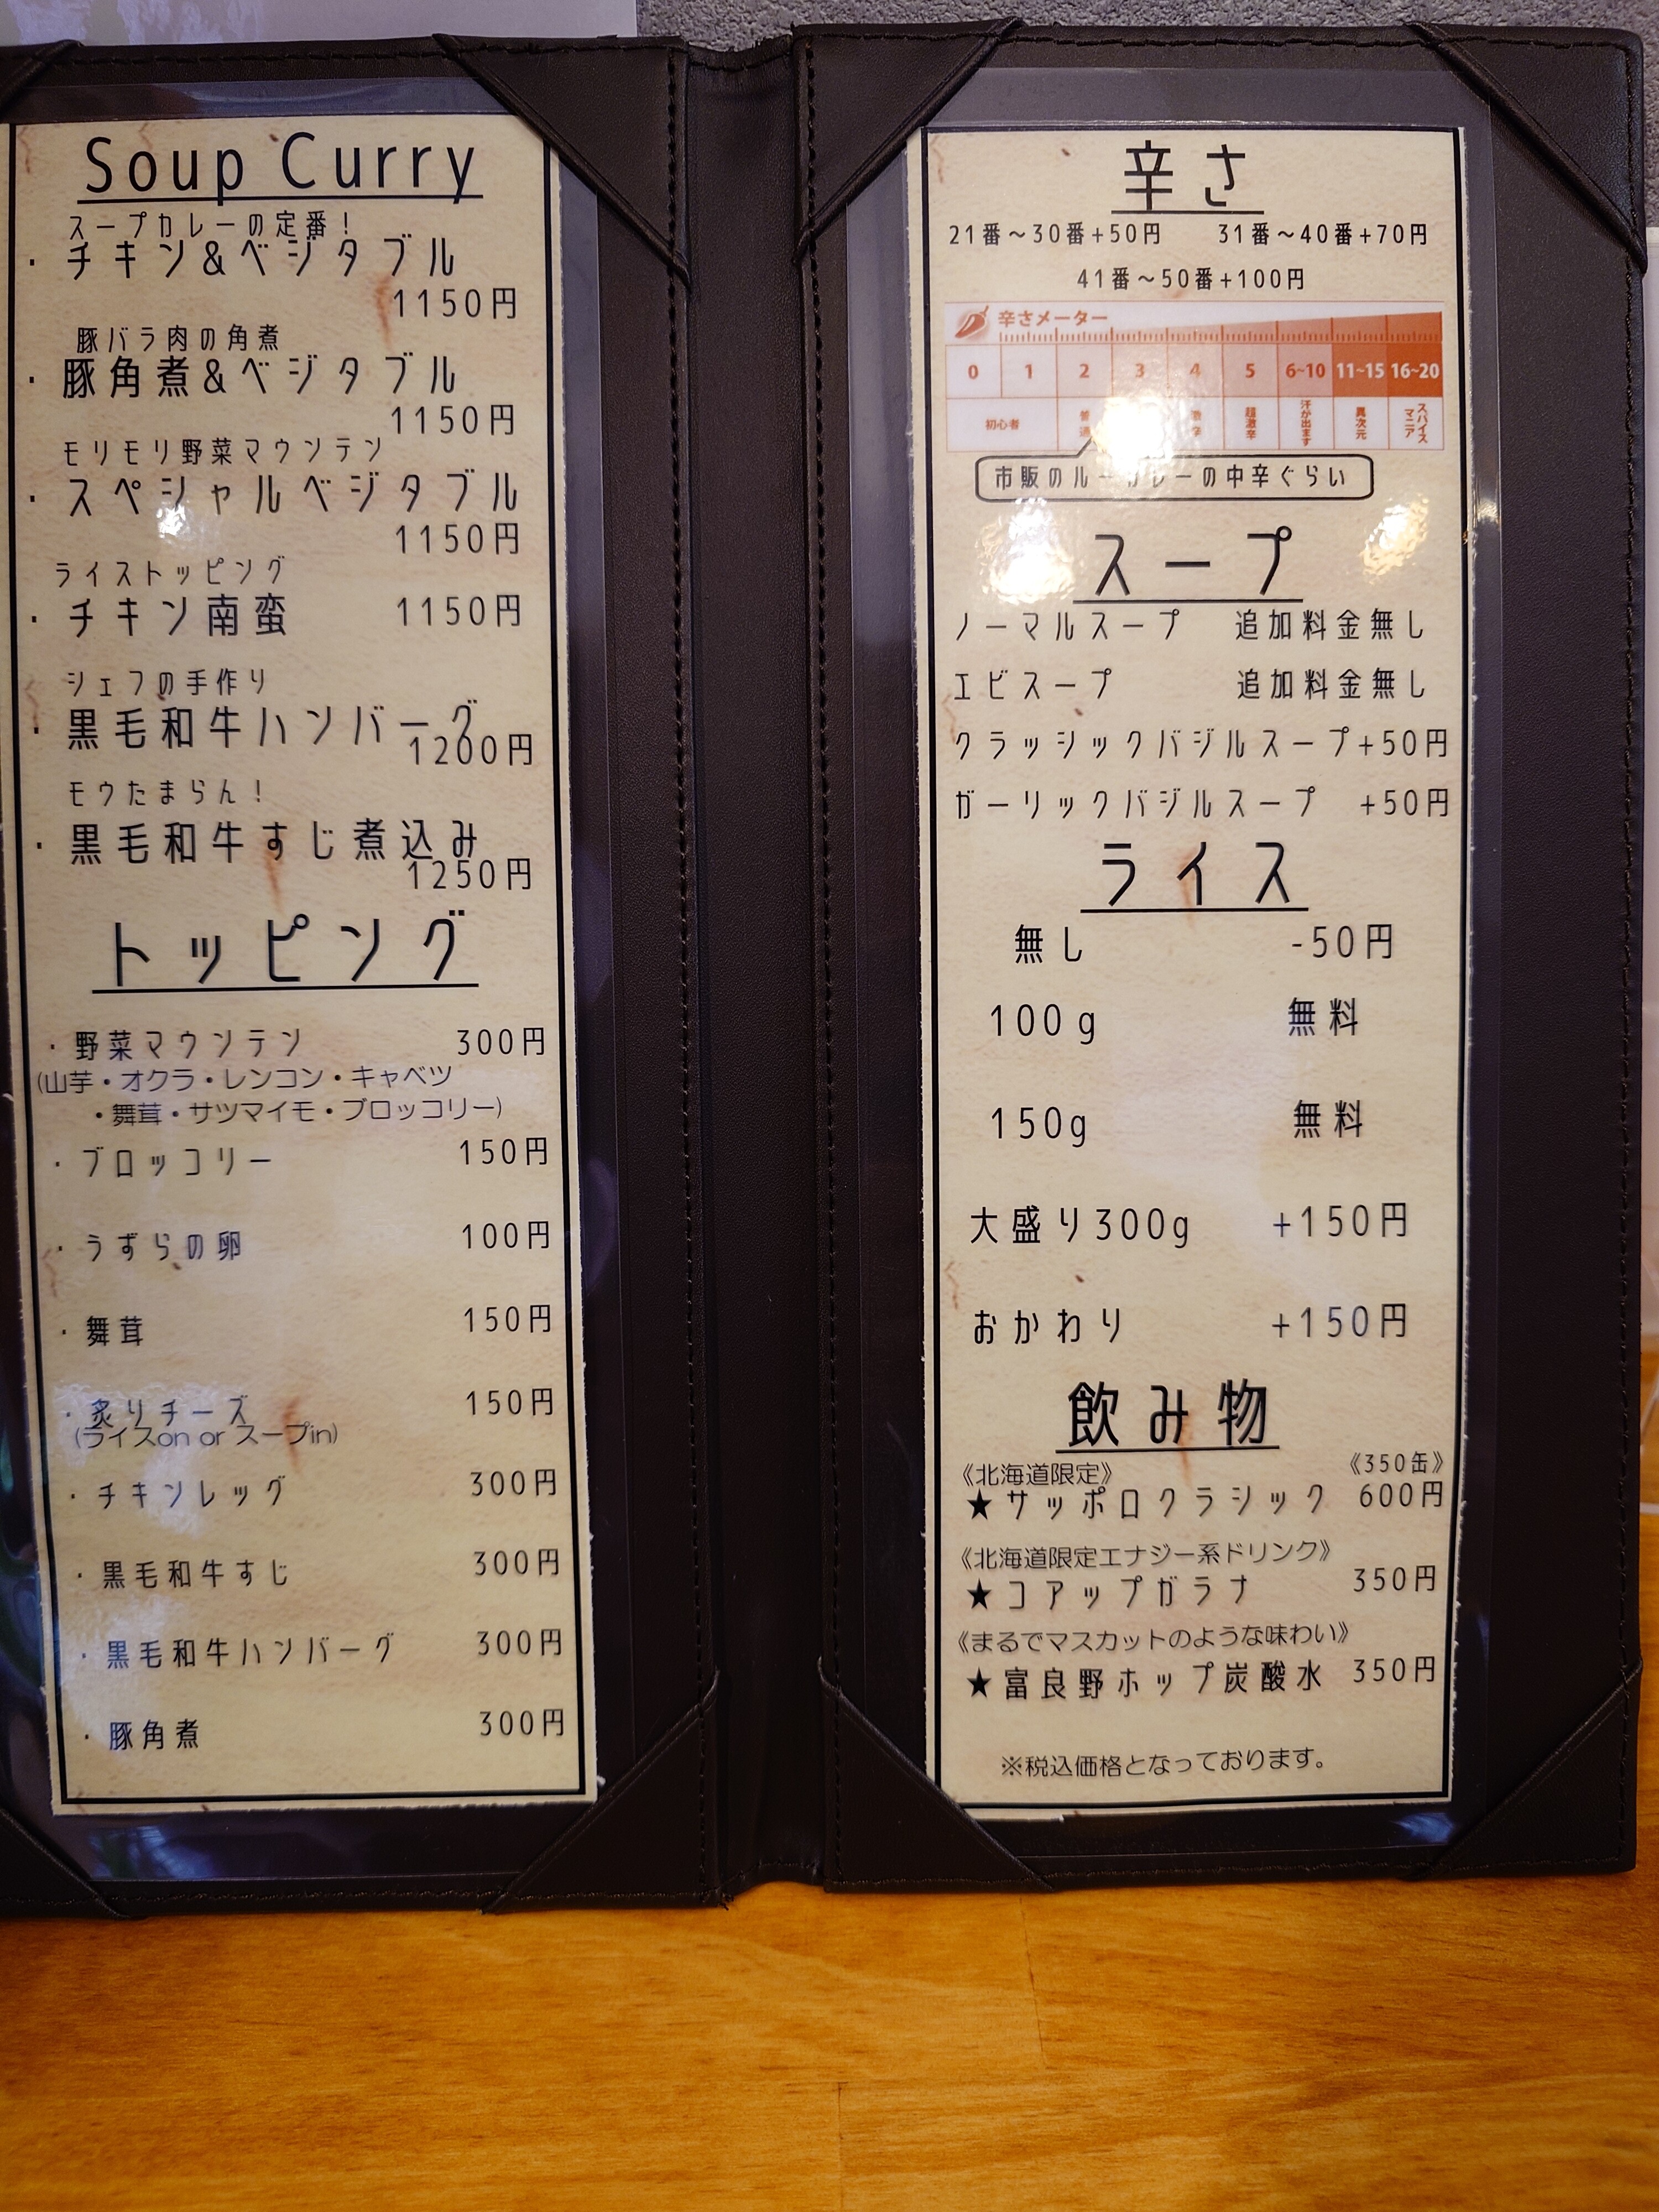 Soup Curry
スープカレーの定番！
・チキン&ベジタブル
1150円
豚バラ肉の角煮
・豚角煮&ベジタブル
1150円
モリモリ野菜マウンテン
・スペシャルベジタブル
1150円
ライストッピング
・チキン南蛮 1150円
シェフの手作り
・黒毛和牛ハンバーグ
1200円
モウたまらん！
・黒毛和牛すじ煮込み
1250円
トッピング
・野菜マウンテン 300円
(山芋・オクラ・レンコン・キャベツ
・舞茸・サツマイモ・ブロッコリー)
・ブロッコリー 150円
・うずらの卵 100円
・舞茸 150円
・炙りチーズ 150円
(ライスon or スープin)
・チキンレッグ 300円
・黒毛和牛すじ 300円
・黒毛和牛ハンバーグ 300円
・豚角煮 300円
辛さ
21番～30番+50円 31番～40番+70円
41番～50番+100円
辛さメーター
0 1 2 3 4 5 6~10 11~15 16~20
初心者 超激辛 汗が出ます 異次元 スパイスマニア
市販のルーカレーの中辛ぐらい
スープ
ノーマルスープ 追加料金無し
エビスープ 追加料金無し
クラッシックバジルスープ+50円
ガーリックバジルスープ +50円
ライス
無し -50円
100g 無料
150g 無料
大盛り300g +150円
おかわり +150円
飲み物
《北海道限定》 《350缶》
★サッポロクラシック 600円
《北海道限定エナジー系ドリンク》
★コアップガラナ 350円
《まるでマスカットのような味わい》
★富良野ホップ炭酸水 350円
※税込価格となっております。